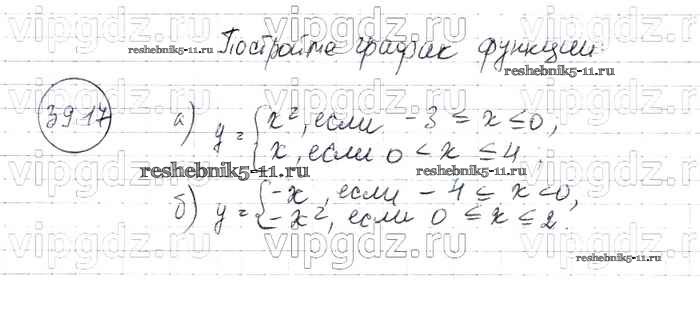 vipgdz.ru vipgdz.ru vipgdz.ru
Постройте график функции:
reshebnik5-11.ru reshebnik5-11.ru
39.17 а) y = { x², если -3 ≤ x ≤ 0,
x, если 0 < x ≤ 4;
reshebnik5-11.ru reshebnik5-11.ru
б) y = { -x, если -4 ≤ x < 0,
-x², если 0 ≤ x ≤ 2.
vipgdz.ru vipgdz.ru vipgdz.ru
reshebnik5-11.ru